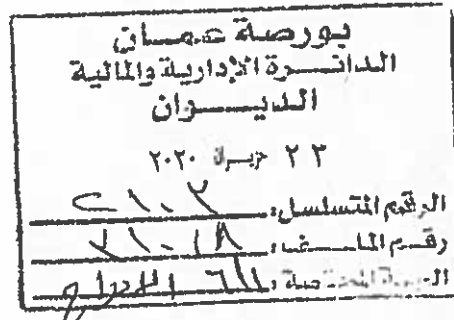 بورصة عمان
الدائرة الإدارية والمالية
الديوان
٢٣ حزيران ٢٠٢٠
الرقم المتسلسل:
رقم الملف:
الجهة المختصة: